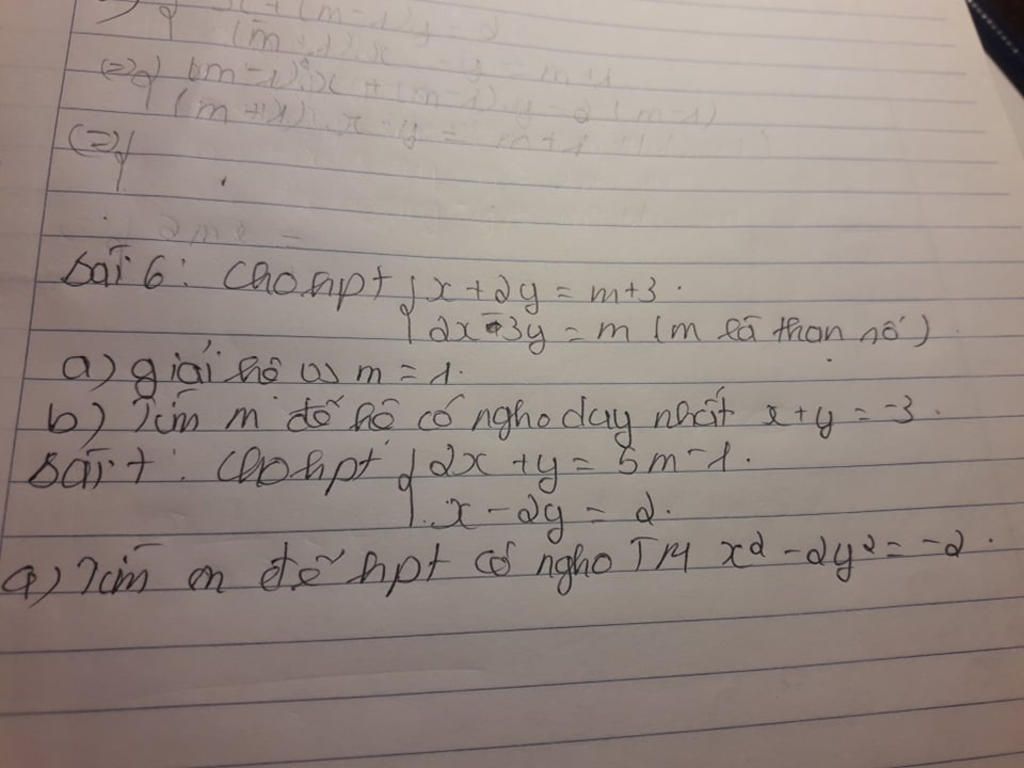 (m-1)x + (m-1)y = 2(m-1)
(m+1).x - y = m+1
(=)
Bài 6: Cho hpt { x + 2y = m+3.
2x - 3y = m (m là tham số)
a) giải hệ vs m = 1.
b) Tìm m để hệ có ngho duy nhất x+y = -3.
Bài 7: Cho hpt { 2x + y = 5m-1.
x - 2y = 2.
a) Tìm m để hpt có ngho TM x² - 2y² = -2.